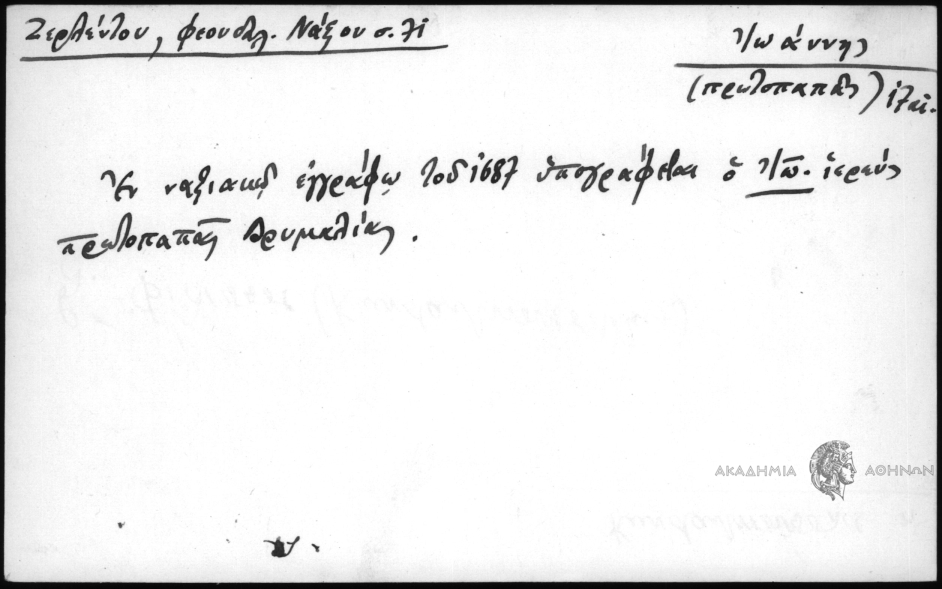 Ζερλέντου, φεουδαλ. Νάξου σ. 71
Ἰωάννης
(πρωτοπαπᾶς)
Ἐν ναξιακῷ ἐγγράφῳ τοῦ 1687 ὑπογράφεται ὁ Ἰω. ἱερεύς
πρωτοπαπᾶς Δρυμαλίας.
ΑΚΑΔΗΜΙΑ ΑΘΗΝΩΝ